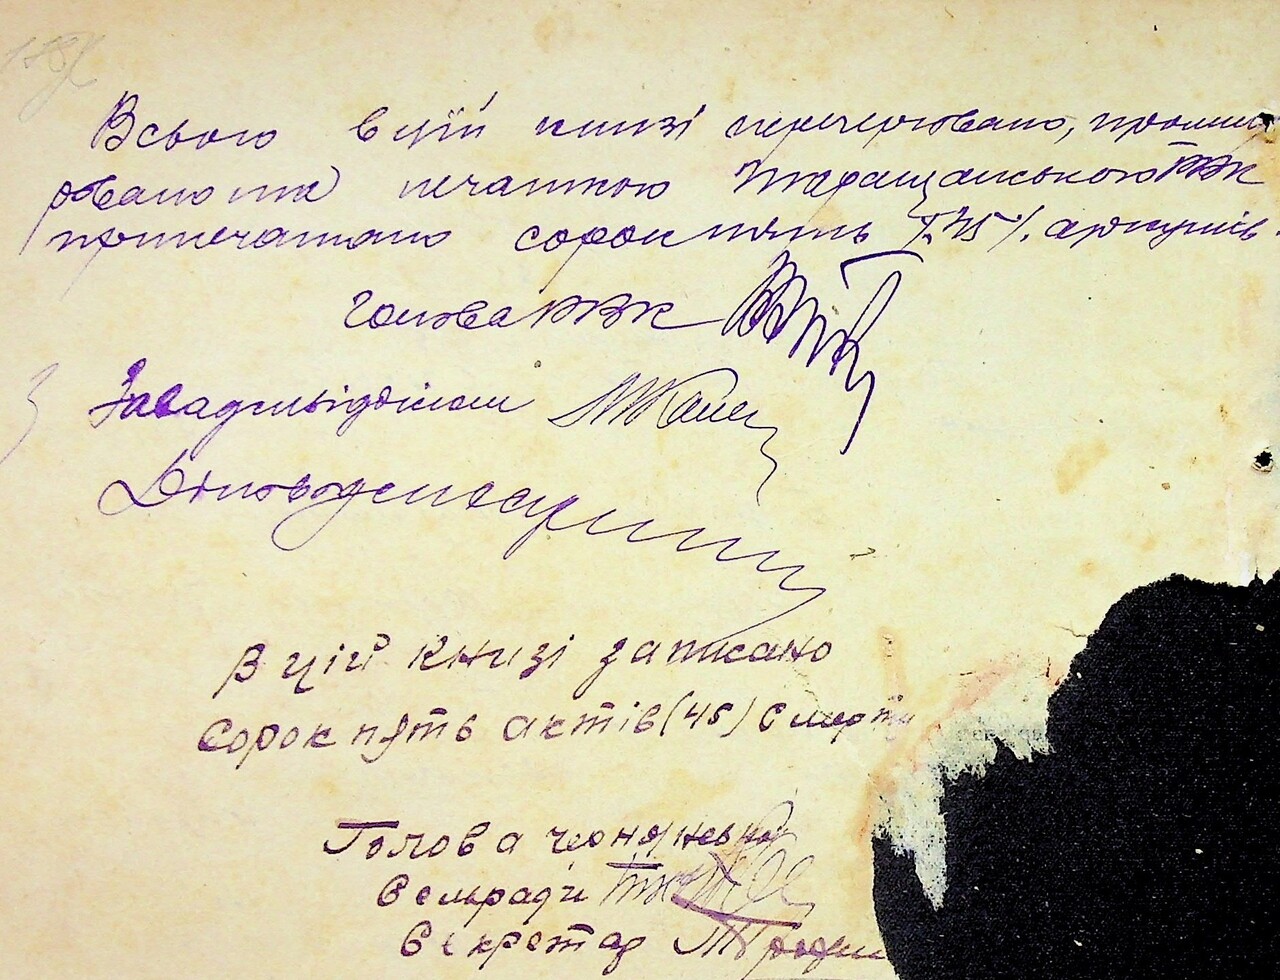 Всього в цій книзі перечерговано, прошну
ровано та печаткою Таращанського РВК
припечатано сорок пять /45/. аркушів.
Голова РВК
Завадмвідділом
Діловод
В цій книзі записано
Сорок пять актів (45) смерти
Голова
сельради
Секретар